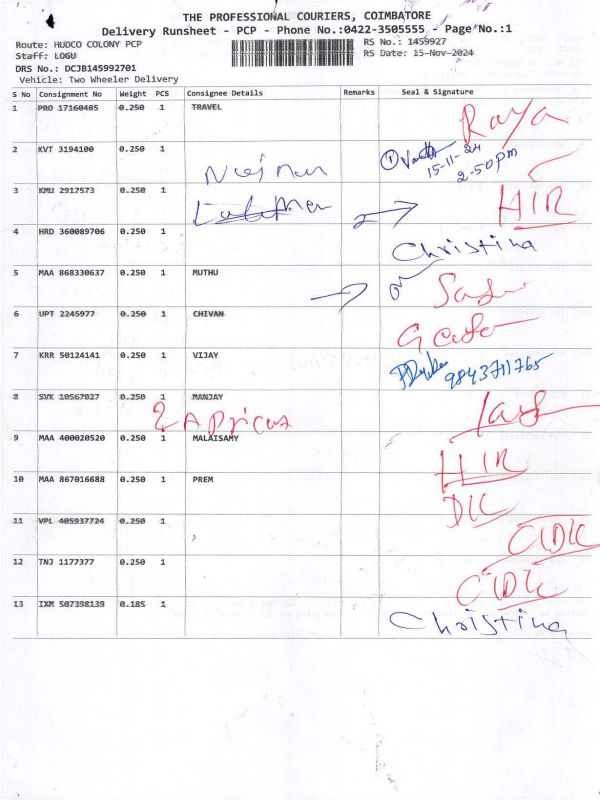 THE PROFESSIONAL COURIERS, COIMBATORE
Delivery Runsheet - PCP - Phone No.:0422-3505555 - Page No.:1
Route: HUDCO COLONY PCP
RS No.: 1459927
Staff: LOGU
RS Date: 15-Nov-2024
DRS No.: DCJB145992701
Vehicle: Two Wheeler Delivery
S No Consignment No Weight PCS Consignee Details Remarks Seal & Signature
1 PRO 17160485 0.250 1 TRAVEL Raya
2 KVT 3194100 0.250 1
15-11-24
2-50pm
3 KMU 2917573 0.250 1 HIR
4 HRD 360089706 0.250 1 Christina
5 MAA 868330637 0.250 1 MUTHU
6 UPT 2245977 0.250 1 CHIVAN
7 KRR 50124141 0.250 1 VIJAY 9843711765
8 SVK 10567827 0.250 1 MANJAY
9 MAA 400020520 0.250 1 MALAISAMY HIR
10 MAA 867016688 0.250 1 PREM DK
11 VPL 405937724 0.250 1
12 TNJ 1177377 0.250 1
13 IXM 507398139 0.185 1 Christina